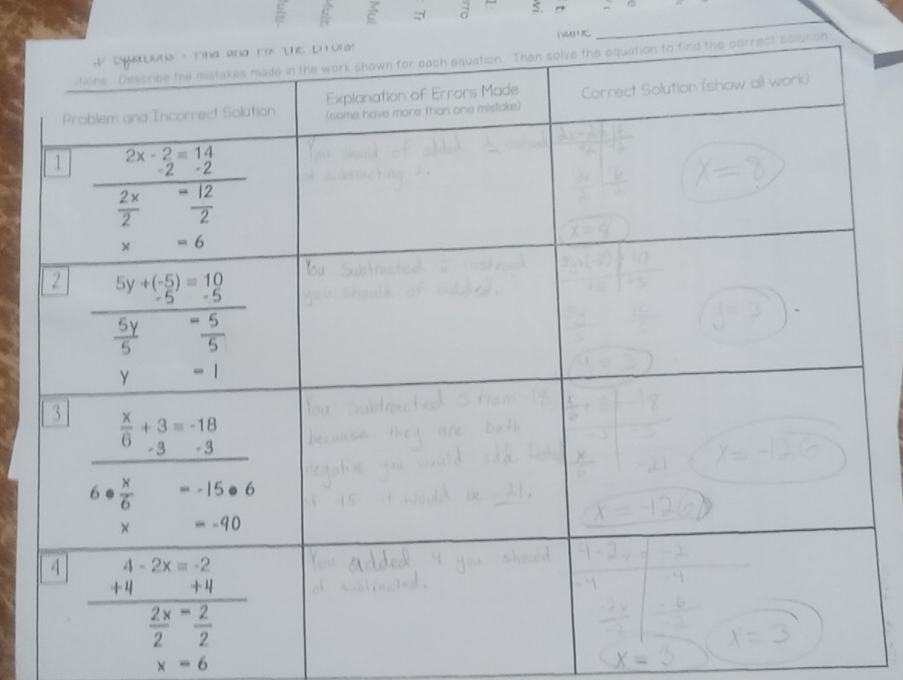 2-Step Equations - Find and Fix the Errors!
NAME
Describe the mistakes made in the work shown for each equation. Then solve the equation to find the correct solution.
Problem and Incorrect Solution
Explanation of Errors Made
(some have more than one mistake)
Correct Solution (show all work)
1
2x - 2 = 14
-2 -2
2x = 12
2 2
x = 6
You should of added 2 instead
of subtracting 2.
2x - 2 = 14
+2 +2
x = 8
x = 8
2
5y + (-5) = 10
-5 -5
5y = 5
5 5
y = 1
You subtracted instead
you should of added.
y = 3
y = 3
3
x/6 + 3 = -18
-3 -3
6 • x/6 = -15 • 6
x = -90
You subtracted 3 from -18,
because they are both
negative you would add.
15 it would be -21.
-18
-3 -3
x/6 -21
x = -126
x = -126
4
4 - 2x = -2
+4 +4
2x = 2
2 2
x = 6
You added 4 you should
of subtracted.
4 - 2x = -2
-4 -4
-2x -6
-2 -2
x = 3
x = 3